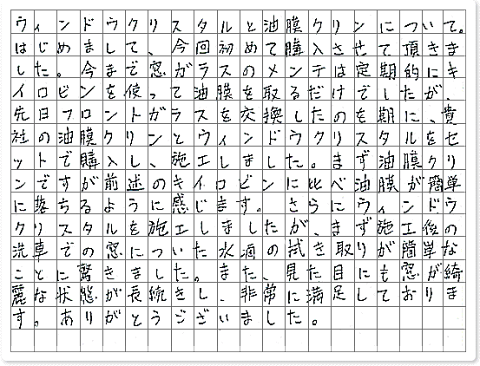 ウィンドウクリスタルと油膜クリンについて。
はじめまして、今回初めて購入させて頂きま
した。今まで窓ガラスのメンテは定期的にキ
イロビンを使って油膜を取るだけでしたが、
先日フロントガラスを交換したのを期に、貴
社の油膜クリンとウィンドウクリスタルをセ
ットで購入し、施工しました。まず油膜クリ
ンですが前述のキイロビンに比べ油膜が簡単
に落ちるように感じます。さらにウィンドウ
クリスタルを施工しましたが、まず施工後の
洗車での窓についた水滴の拭き取りが簡単な
ことに驚きました。また、見た目にも窓が綺
麗な状態が長続きし、非常に満足しておりま
す。ありがとうございました。